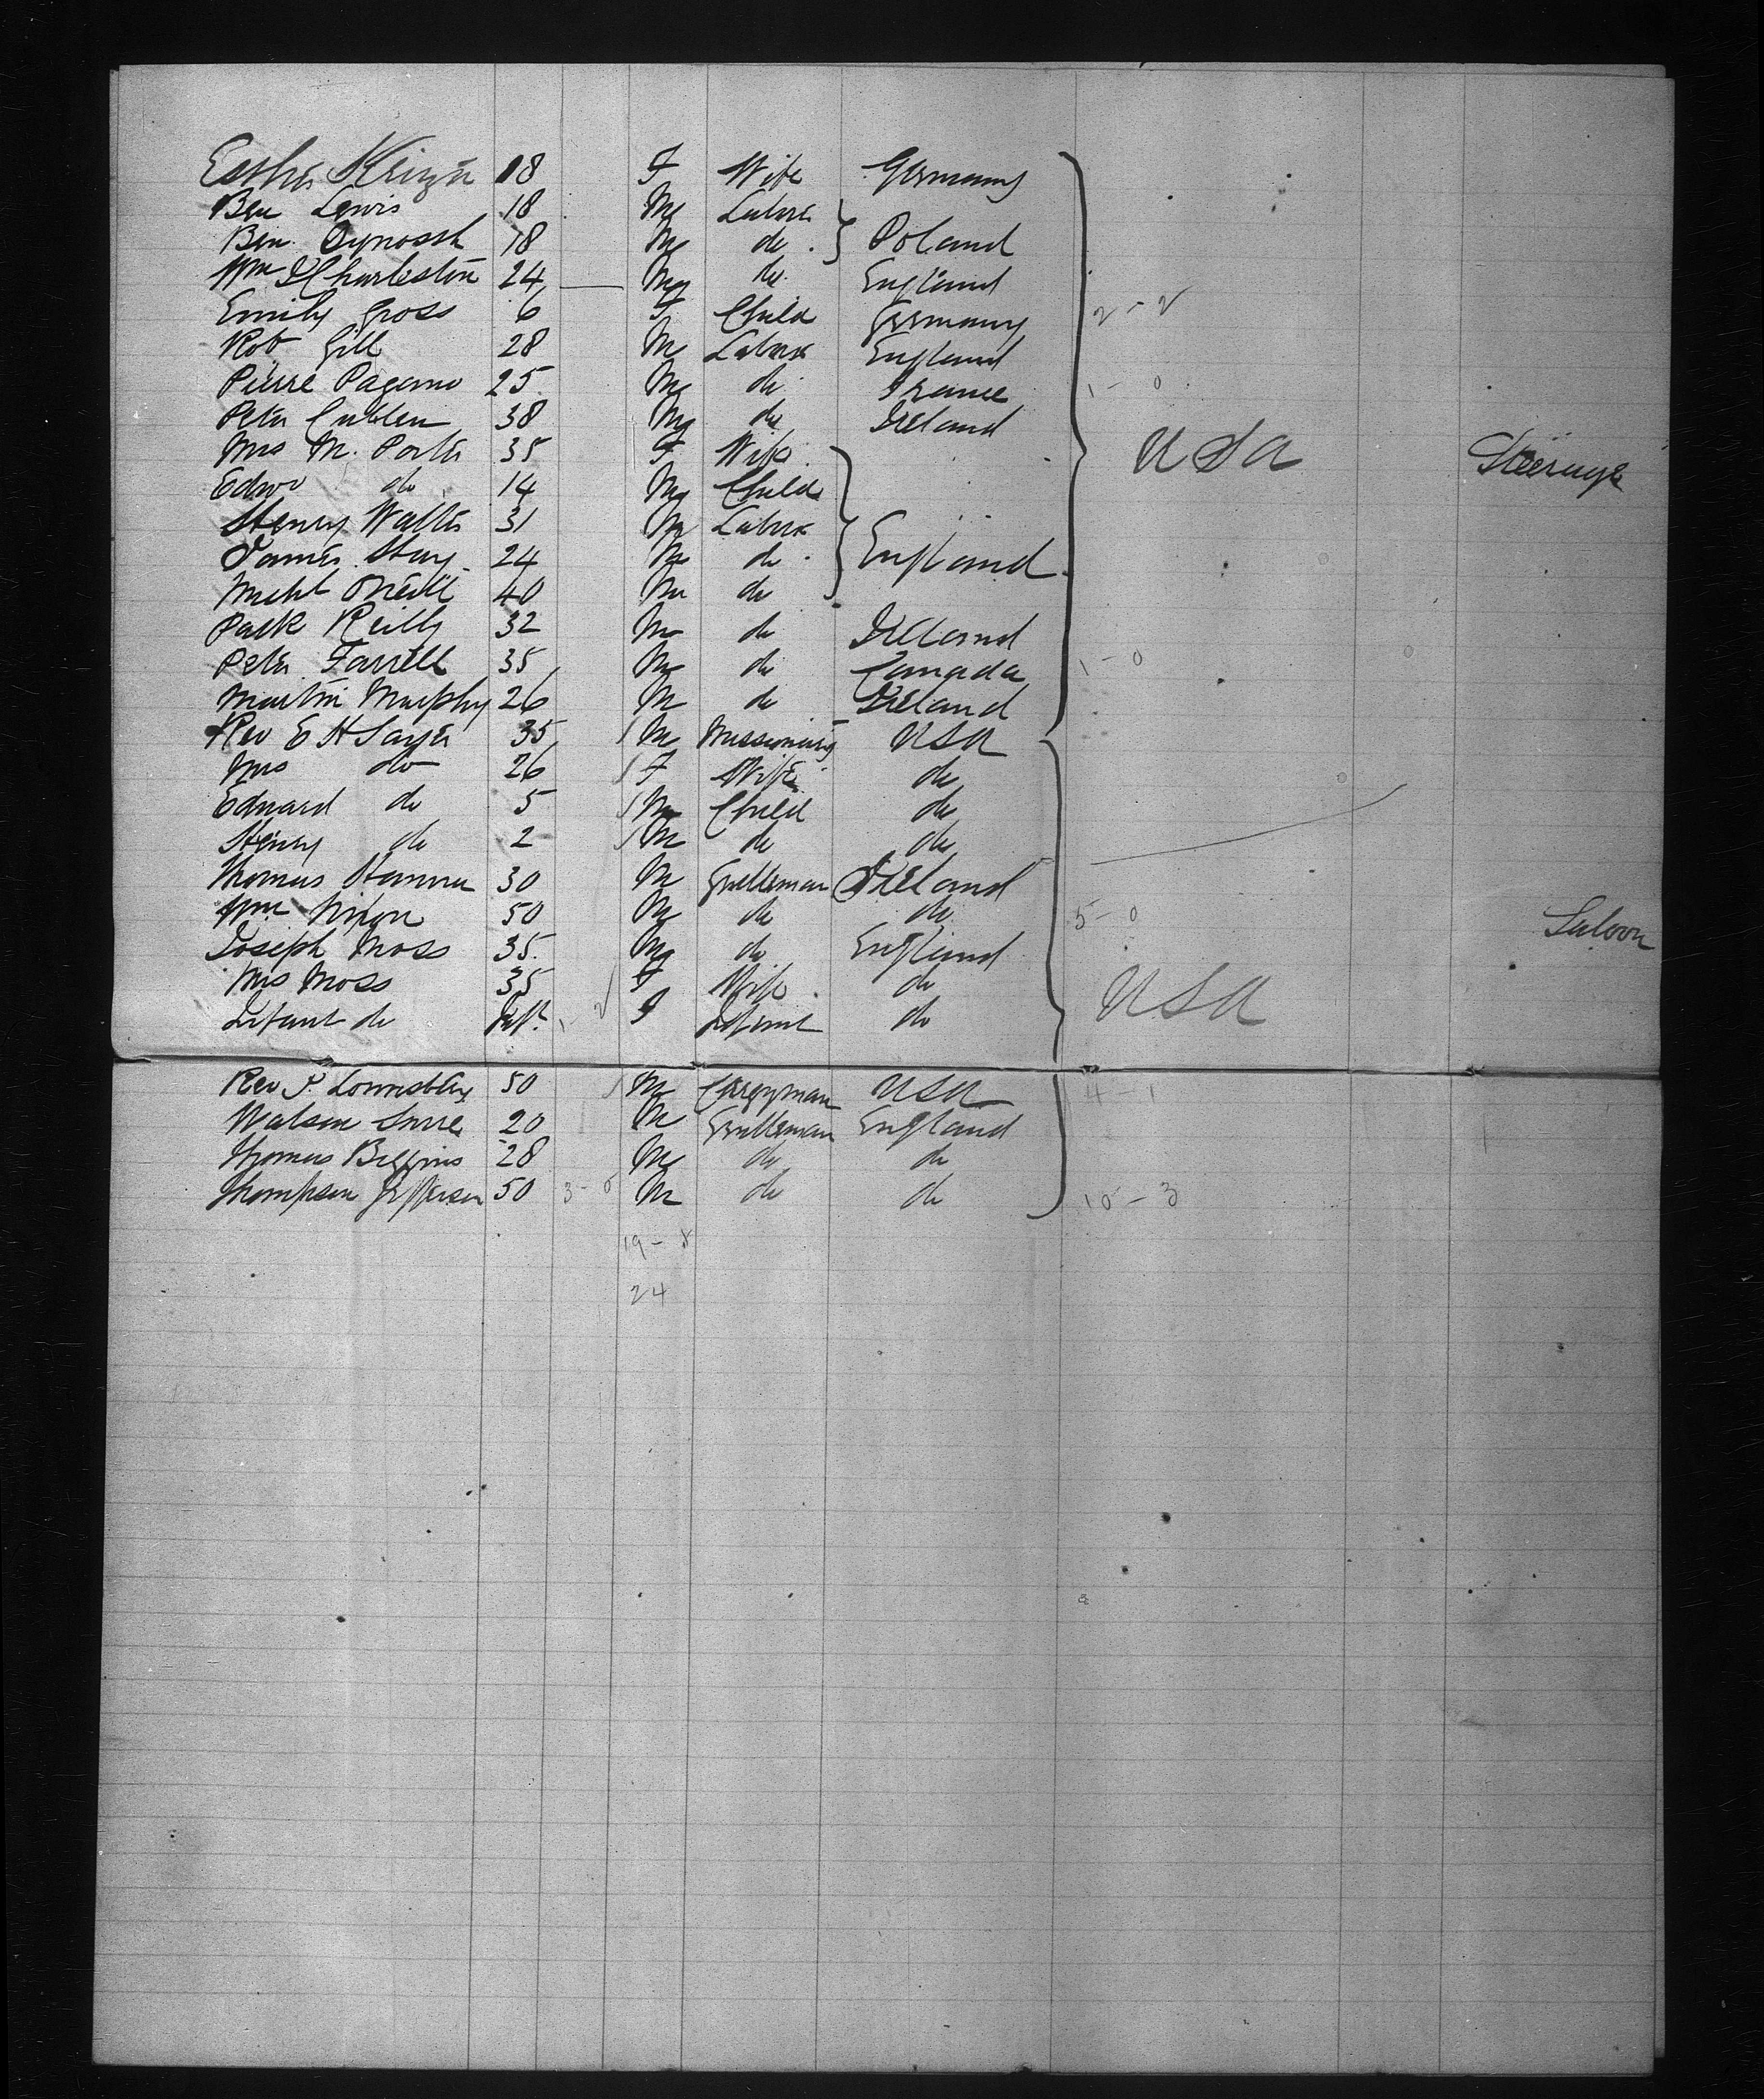 Esther 18 F Wife Germany
Ben Lewis 18 M Labor
Ben 18 M do } Poland
Wm Charleston 24 — M do England
Emily Gross 6 F Child Germany 2 - 2
Rob Gill 28 M Labor England
Pierre Pagamo 25 M do France 1 - 0
Peter Cullen 38 M do Ireland
Mrs M. Porter 35 F Wife USA Steerage
Edwd do 14 M Child
Henry Walter 31 M Labor
James Hay 24 M do } England
Michl O'Neill 40 M do
Patk Reilly 32 M do Ireland
Peter Farrell 35 M do Canada 1 - 0
Martin Murphy 26 M do Ireland
Rev E H Sayer 35 M Missionary USA
Mrs do 26 F Wife do
Edward do 5 M Child do
Henry do 2 M do do
Thomas 30 M Gentleman Ireland
Wm Nixon 50 M do do 5 - 0 Saloon
Joseph Moss 35 M do England
Mrs Moss 35 F Wife do USA
Infant do Inft F Infant do
Rev P. Lounsbery 50 M Clergyman USA 4 1
Watson 20 M Gentleman England
Thomas Biggins 28 M do do
Thompson Jefferson 50 3 - 0 M do do 10 - 3
19 - 8
24